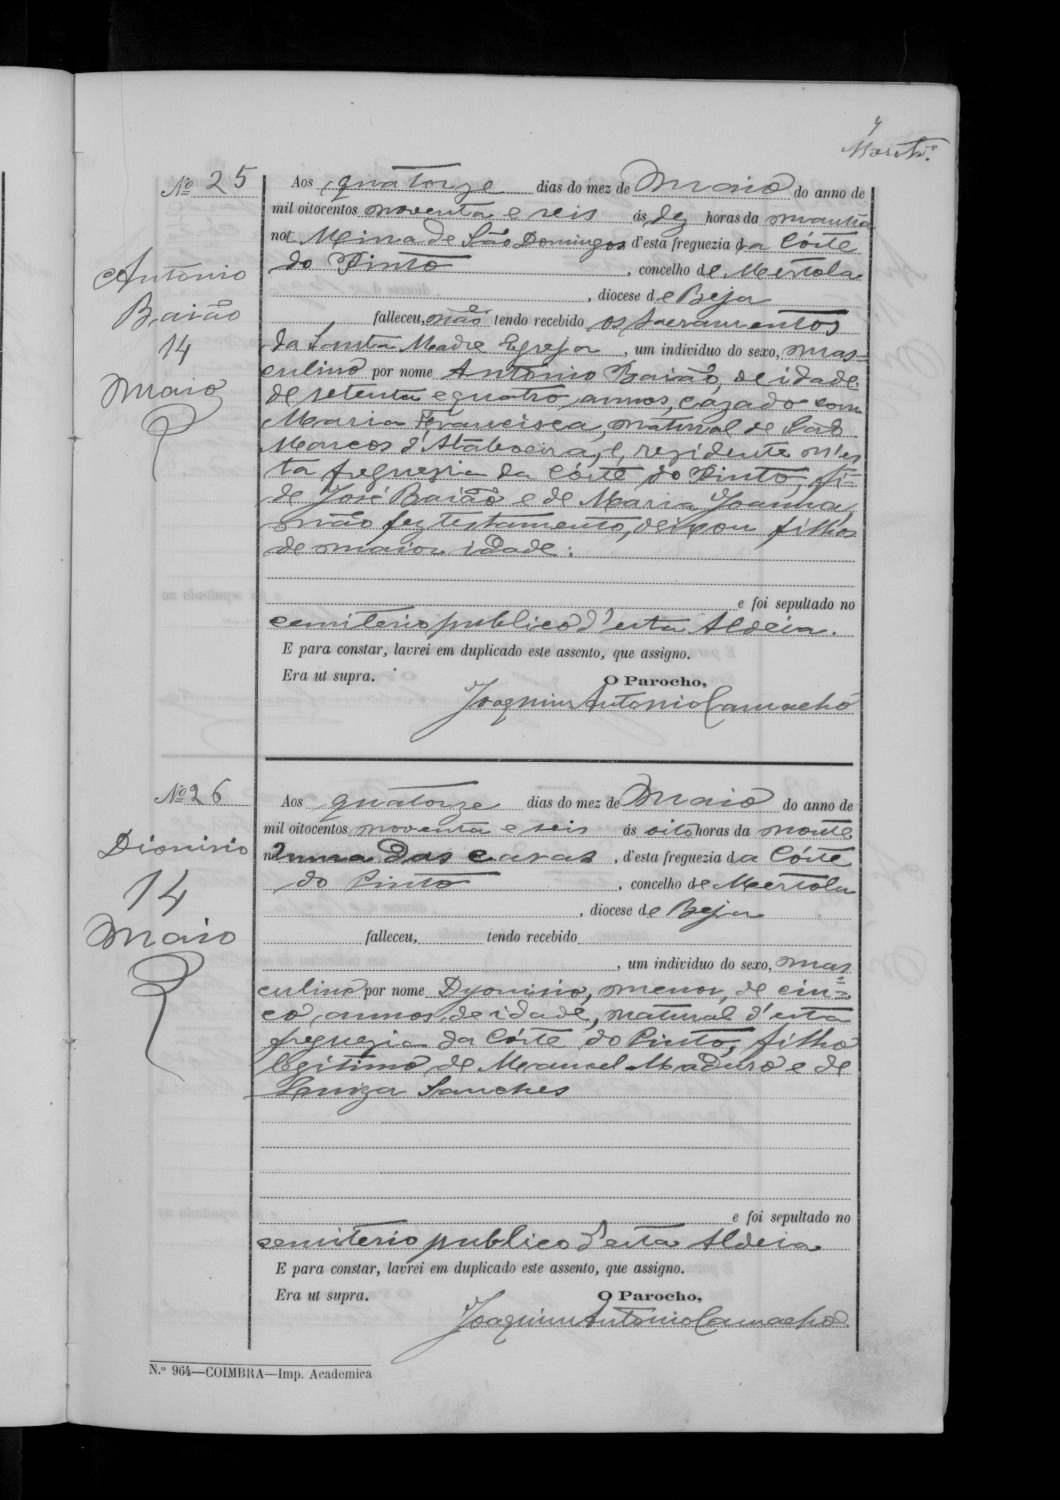 7
Nº 25
Antonio
Baião
14
Maio
Aos quatorze dias do mez de Maio do anno de
mil oitocentos noventa e seis ás dez horas da manhã
na Mina de São Domingos d'esta freguezia da Córte
do Pinto, concelho de Mertola
, diocese de Beja
falleceu, não tendo recebido os sacramentos
da Santa Madre Egreja, um individuo do sexo, mas-
culino por nome Antonio Baião, de idade
de setenta e quatro annos, cazado com
Maria Francisca, natural de São
Marcos d'Ataboeira, e, rezidente n'es
ta freguezia da Córte do Pinto, fi-
de José Baião e de Maria Joanna,
não fez testamento, deixou filhos
de maior idade:
e foi sepultado no
cemiterio publico d'esta Aldeia.
E para constar, lavrei em duplicado este assento, que assigno.
Era ut supra.
O Parocho,
Joaquim Antonio Camacho
Nº 26
Dionisio
14
Maio
Aos quatorze dias do mez de Maio do anno de
mil oitocentos noventa e seis ás oito horas da noute
n'uma das casas, d'esta freguezia da Córte
do Pinto, concelho de Mertola
, diocese de Beja
falleceu, tendo recebido
, um individuo do sexo, mas
culino por nome Dyonisio, menor, de cin=
co annos de idade, natural d'esta
freguezia da Córte do Pinto, filho
legitimo de Manoel Maduro e de
Luiza Sanches
e foi sepultado no
semiterio publico d'esta Aldeia
E para constar, lavrei em duplicado este assento, que assigno.
Era ut supra.
O Parocho,
Joaquim Antonio Camacho
N.º 964—COIMBRA—Imp. Academica